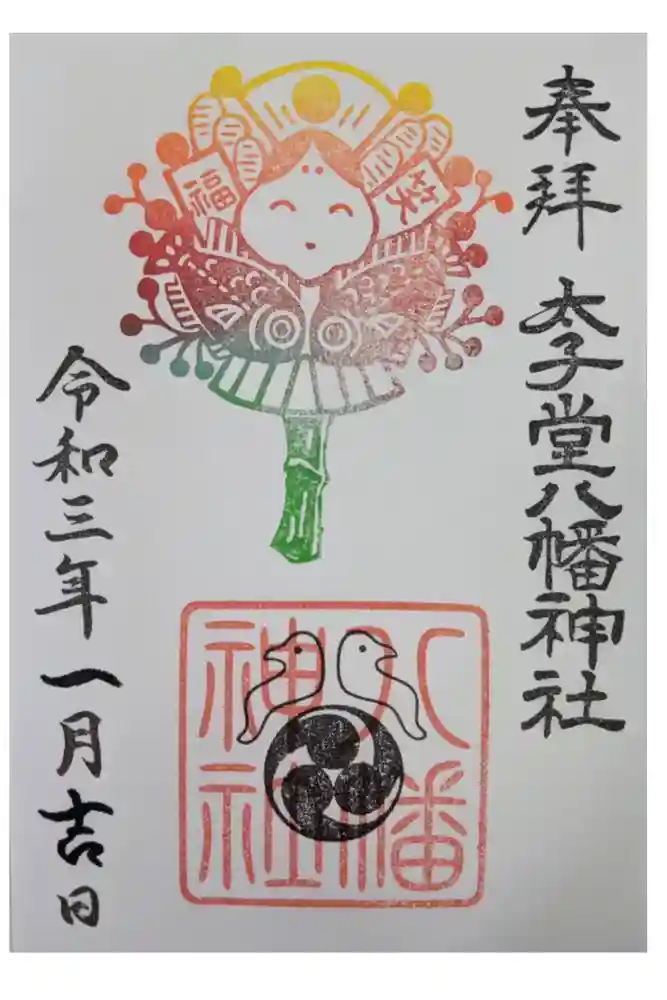 奉拝
太子堂八幡神社
福
笑
八幡
神社
令和三年一月吉日